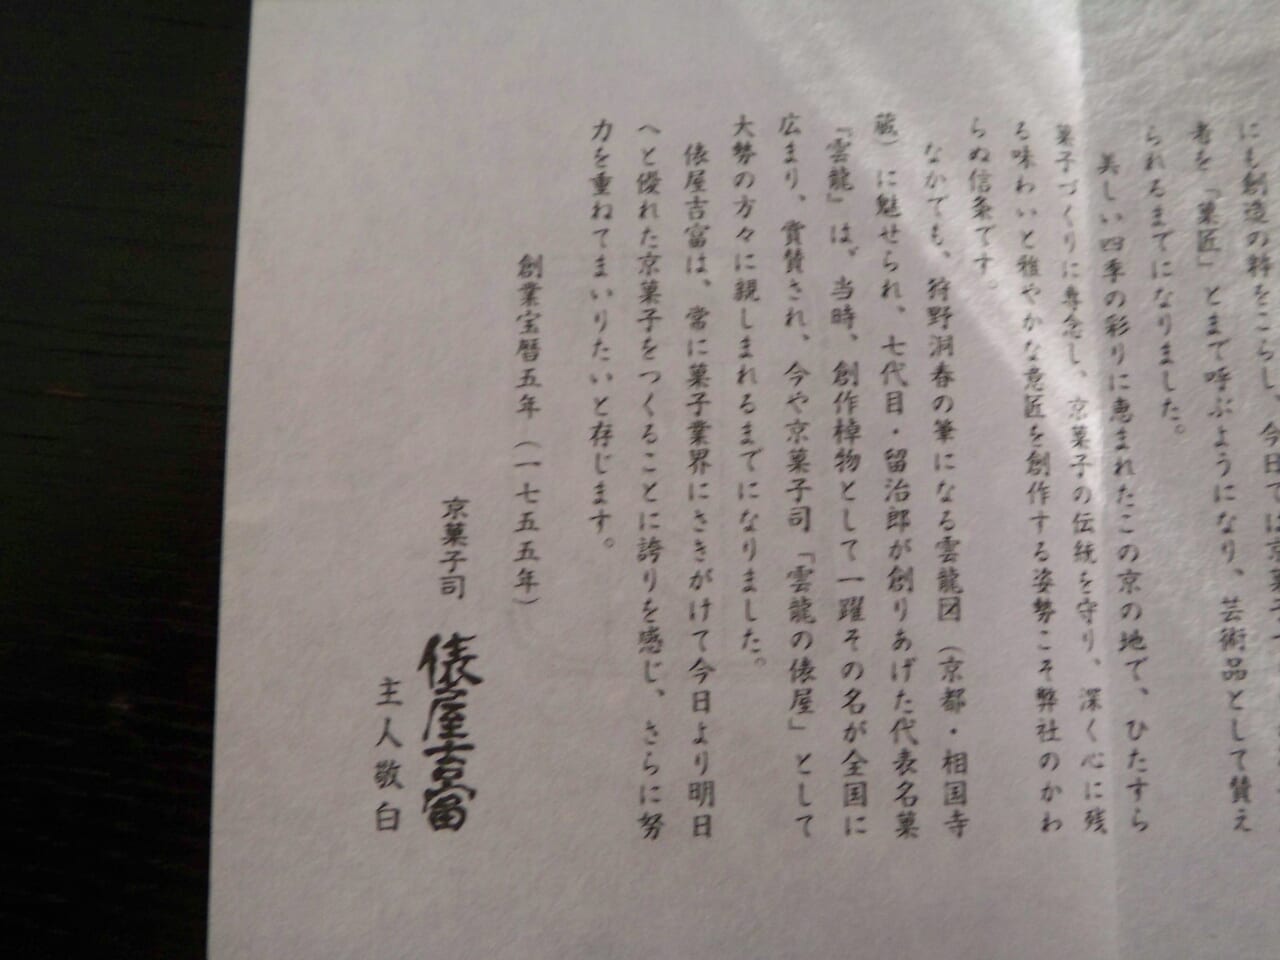 にも創造の粋をこらし、今日では京菓子
者を「菓匠」とまで呼ぶようになり、芸術品として賛え
られるまでになりました。
美しい四季の彩りに恵まれたこの京の地で、ひたすら
菓子づくりに専念し、京菓子の伝統を守り、深く心に残
る味わいと雅やかな意匠を創作する姿勢こそ弊社のかわ
らぬ信条です。
なかでも、狩野洞春の筆になる雲龍図（京都・相国寺
蔵）に魅せられ、七代目・留治郎が創りあげた代表名菓
『雲龍』は、当時、創作棹物として一躍その名が全国に
広まり、賞賛され、今や京菓子司「雲龍の俵屋」として
大勢の方々に親しまれるまでになりました。
俵屋吉富は、常に菓子業界にさきがけて今日より明日
へと優れた京菓子をつくることに誇りを感じ、さらに努
力を重ねてまいりたいと存じます。
創業宝暦五年（一七五五年）
京菓子司 俵屋吉富
主人敬白